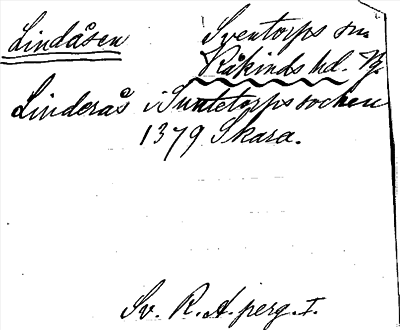 Lindåsen
Sventorps sn.
Kåkinds hd. Vg.
Linderås i Suntetorps socken
1379 Skara.
Sv. R. A. perg. I.